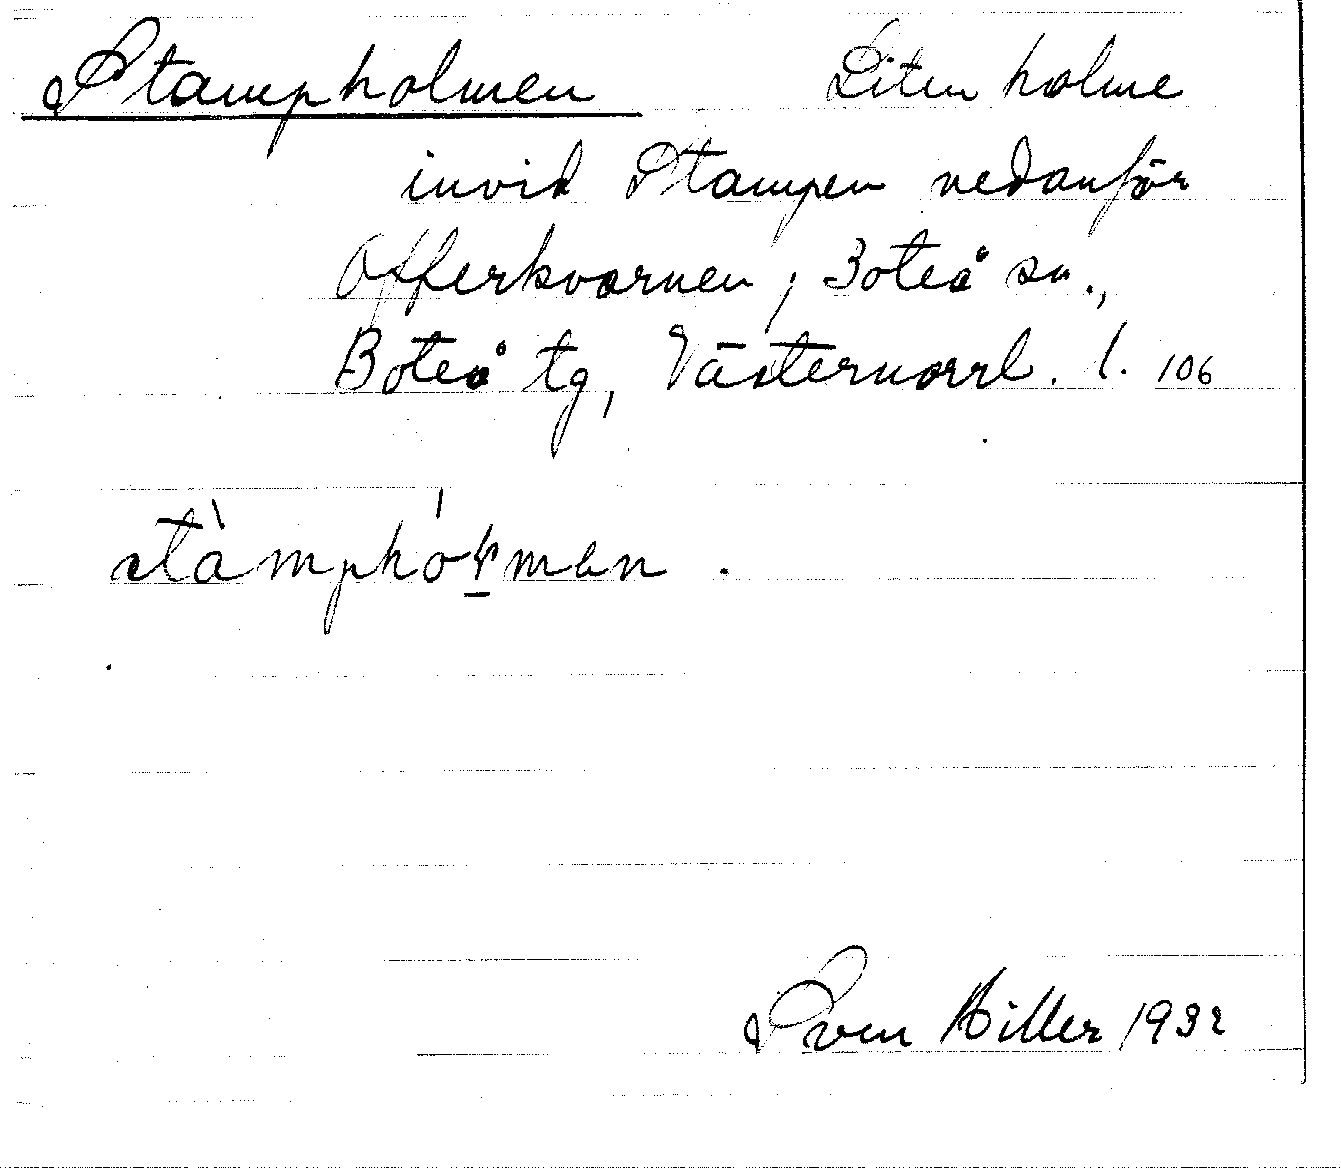 Stampholmen Liten holme
invid Stampen nedanför
Offerkvarnen; Boteå sn.,
Boteå tg, Västernorrl. l. 106
Sven Hiller 1932